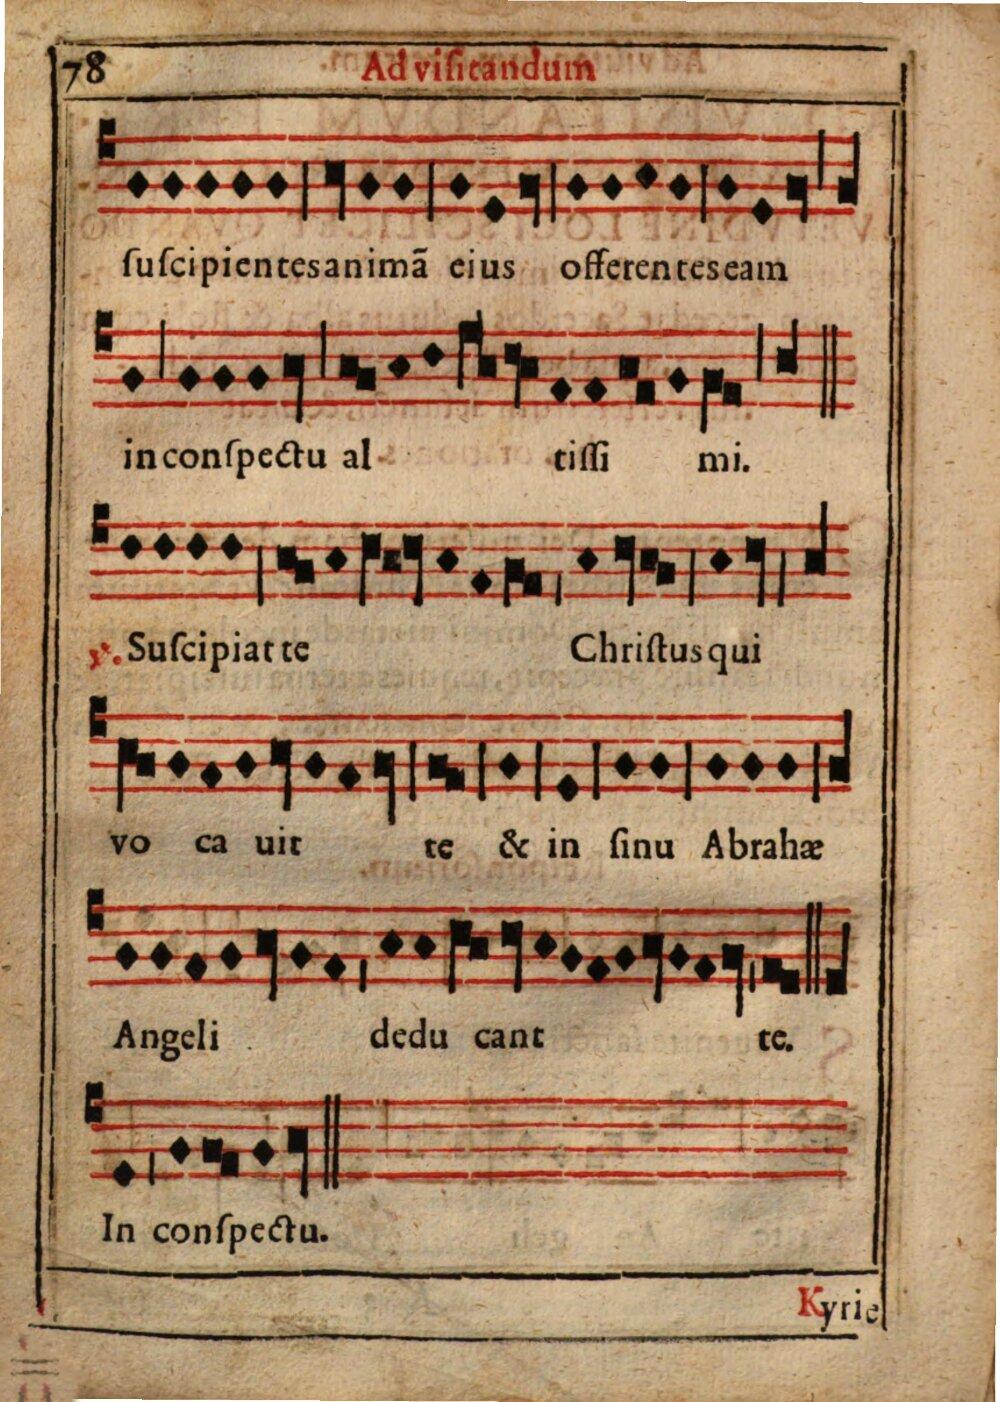 78 Ad visitandum
suſcipientes animā eius offerentes eam
in conſpectu al tiſſi mi.
℣. Suſcipiat te Chriſtus qui
vo ca uit te & in ſinu Abrahæ
Angeli dedu cant te.
In conſpectu.
Kyrie